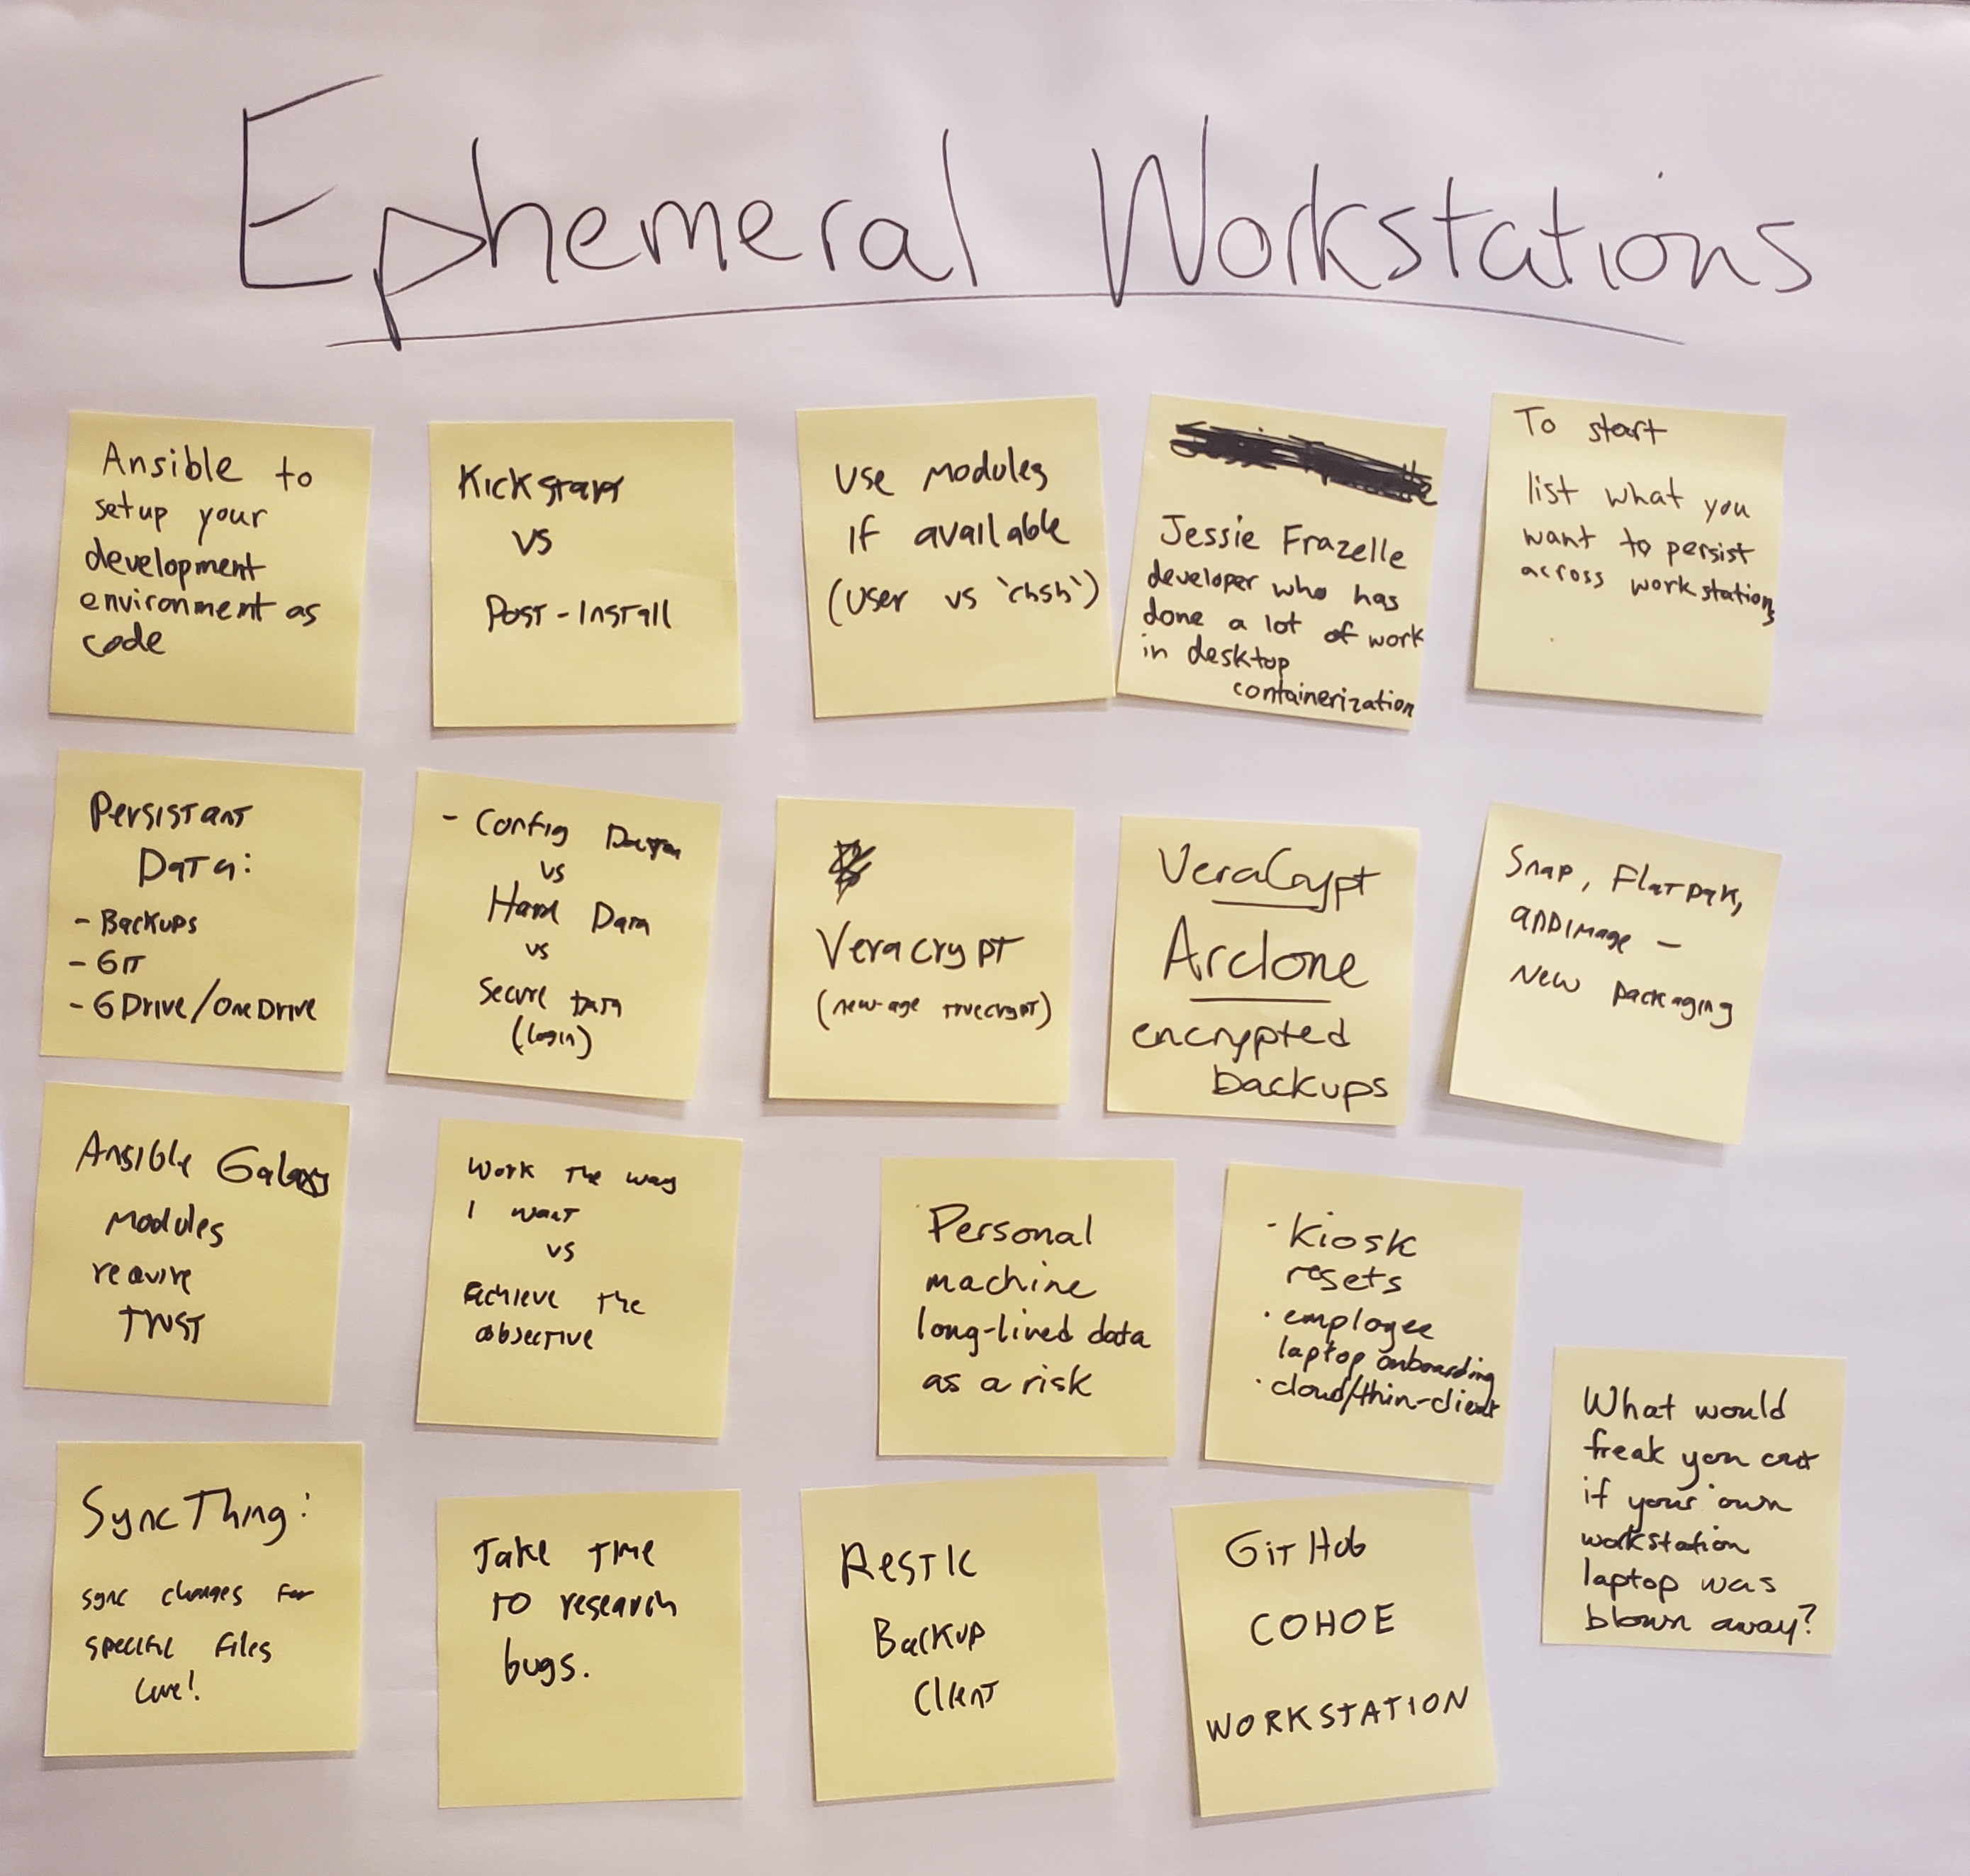 Ephemeral Workstations
Ansible to
setup your
development
environment as
code
Kickstart
vs
Post-Install
Use modules
if available
(user vs `chsh`)
Jessie Frazelle
developer who has
done a lot of work
in desktop
containerization
To start
list what you
want to persist
across workstations
Persistant
Data:
- Backups
- Git
- GDrive/OneDrive
- Config Data
vs
Hard Data
vs
Secure Data
(login)
Veracrypt
(new-age truecrypt)
VeraCrypt
Arclone
encrypted
backups
Snap, Flatpak,
appimage -
New packaging
Ansible Galaxy
modules
require
trust
Work the way
I want
vs
Achieve the
objective
Personal
machine
long-lived data
as a risk
- Kiosk
resets
· employee
laptop onboarding
· cloud/thin-client
What would
freak you out
if your own
workstation
laptop was
blown away?
SyncThing:
sync changes for
specific files
live!
Take time
to research
bugs.
Restic
Backup
Client
GitHub
COHOE
WORKSTATION